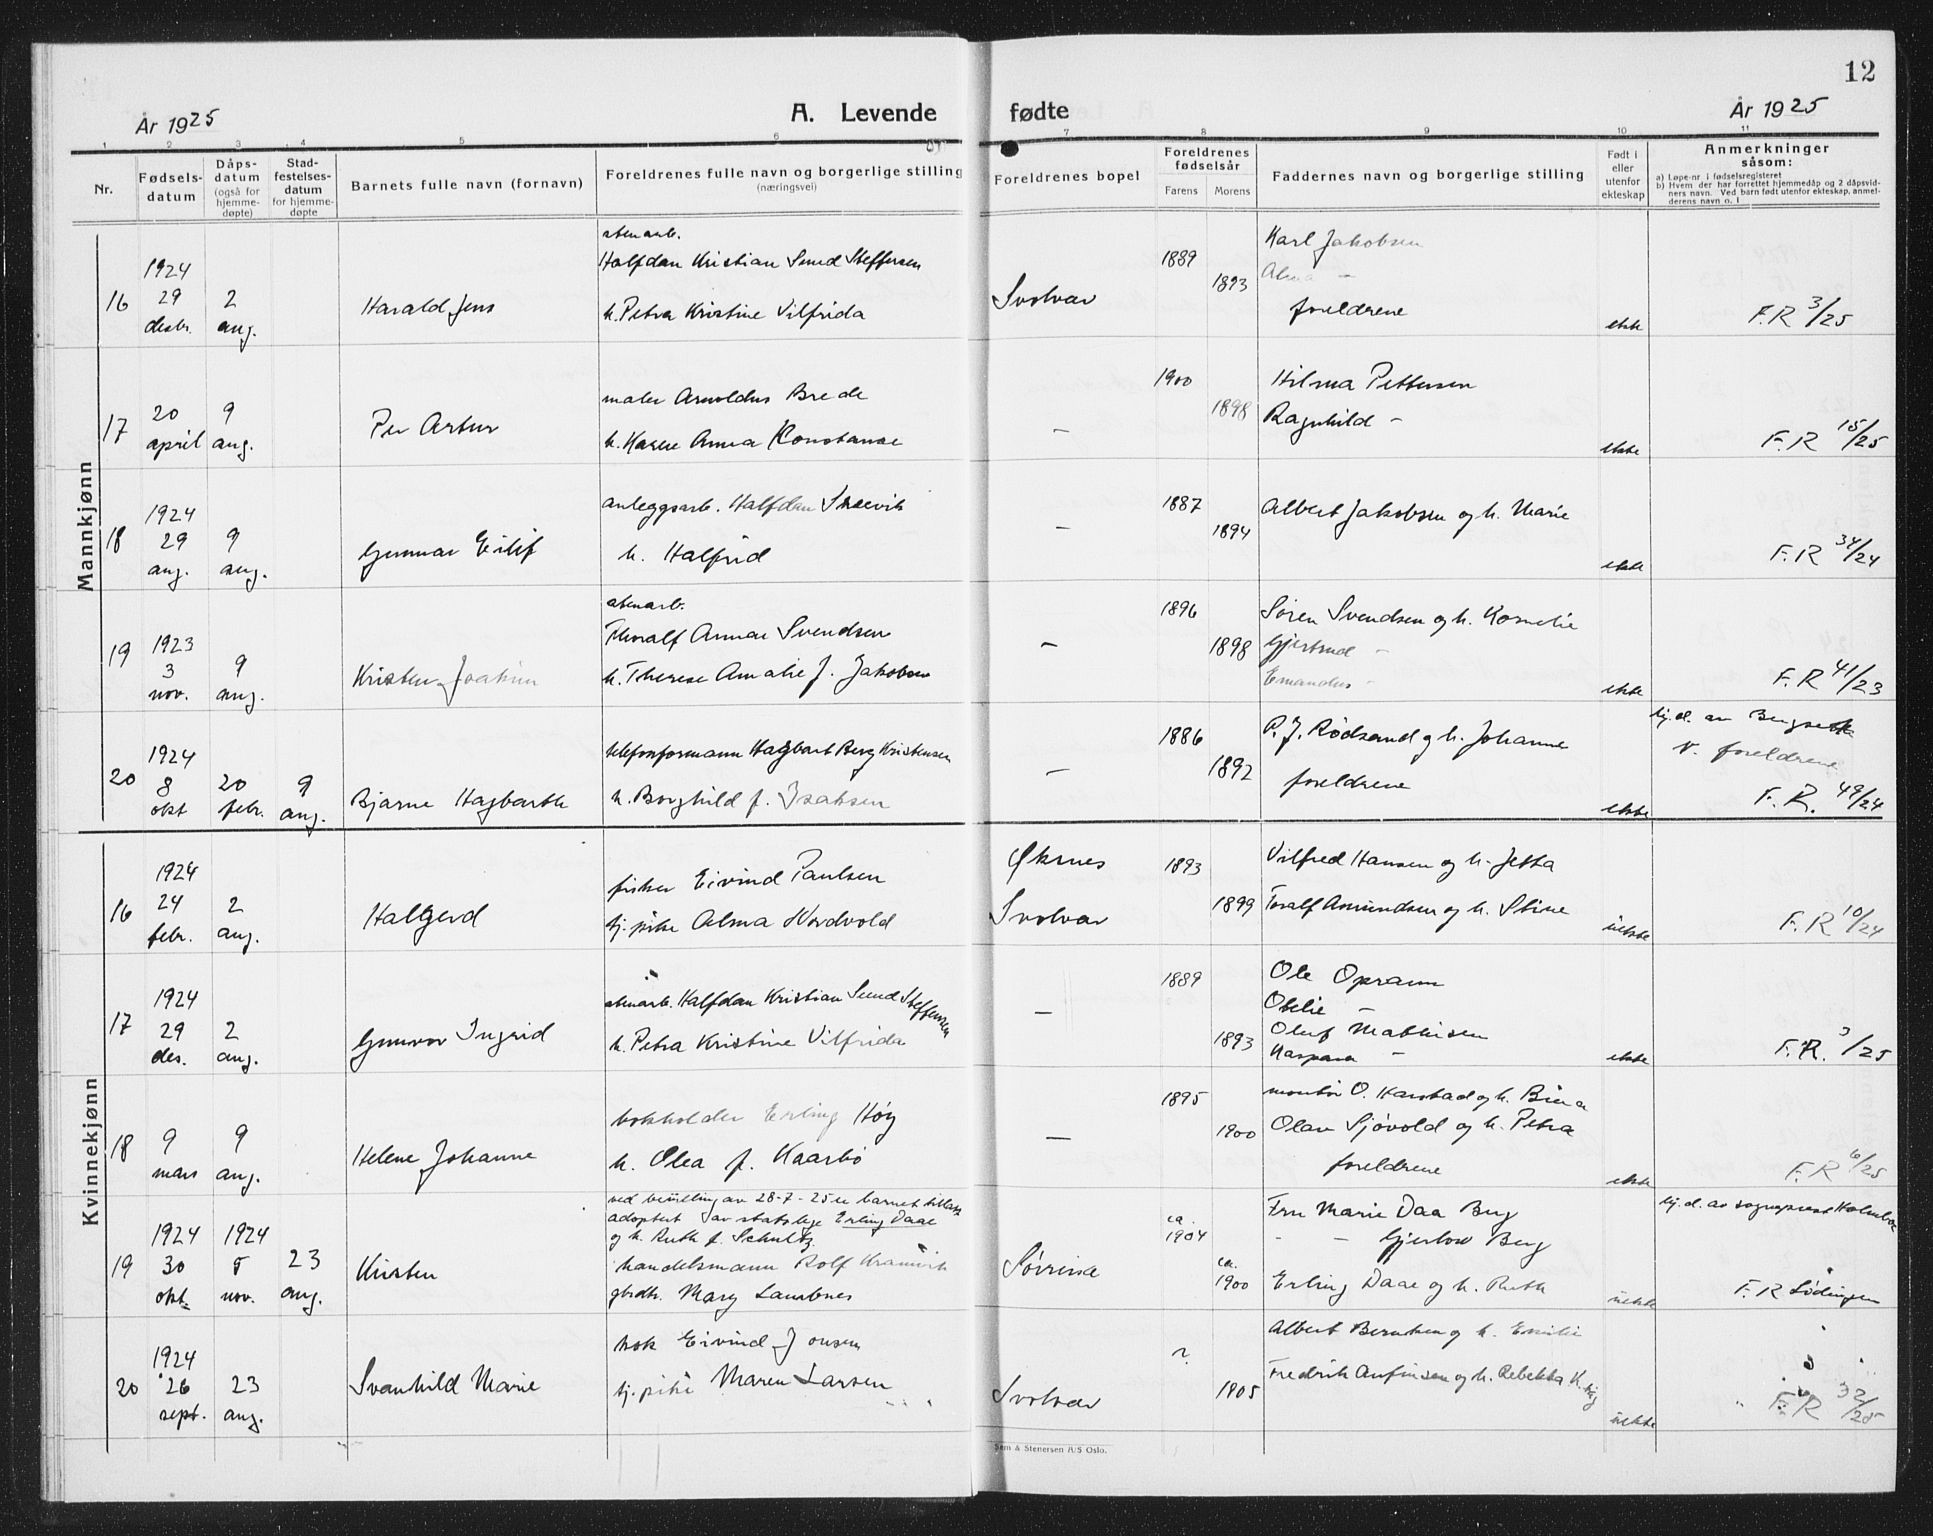 12
År 1925
A. Levende fødte
År 1925
1 2 3 4 5 6 7 8 9 10 11
Nr.
Fødsels-
datum
Dåps-
datum
(også for
hjemme-
døpte)
Stad-
festelses-
datum
for hjemme-
døpte
Barnets fulle navn (fornavn)
Foreldrenes fulle navn og borgerlige stilling
(næringsvei)
Foreldrenes bopel
Foreldrenes
fødselsår
Farens Morens
Faddernes navn og borgerlige stilling
Født i
eller
utenfor
ekteskap
Anmerkninger
såsom:
a) Løpe-nr i fødselsregisteret
b) Hvem der har forrettet hjemmedåp og 2 dåpsvid-
ners navn. Ved barn født utenfor ekteskap, anmel-
derens navn o. l
Mannkjønn
16
1924
29
desbr.
2
aug.
Harald Jens
stenarb.
Halfdan Kristian Sund Steffensen
h. Petra Kristine Vilfrida
Svolvær
1889
1893
Karl Jakobsen
Alma —
foreldrene
ekte
F.R 3/25
17
20
april
9
aug.
Per Artur
maler Arnoldus Brede
h. Karen Anna Konstanse
—
1900
1898
Hilma Pettersen
Ragnhild -
ekte
F.R 15/25
18
1924
29
aug.
9
aug.
Gunnar Eilif
anleggsarb. Halfdan
h. Halfrid
—
1887
1894
Albert Jakobsen og h. Marie
ekte
F.R 34/24
19
1923
3
nov.
9
aug.
Kristen Joakim
stenarb.
Thoralf Annar Svendsen
h. Therese Amalie f. Jakobsen
—
1896
1898
Søren Svendsen og h. Kornelie
Gjertrud -
Emandus -
ekte
F.R 41/23
20
1924
8
okt
20
febr.
9
aug.
Bjarne Hagbarth
telefonformann Hagbart Berg Kristensen
h. Borghild f. Isaksen
—
1886
1892
P. J. Rødsand og h. Johanne
foreldrene
ekte
hj.d. av
v. foreldrene
F. R. 49/24
Kvinnekjønn
16
1924
24
febr.
2
aug.
Hallgerd
fisker Eivind Paulsen
tj. pike Alma Nordvold
Øksnes
Svolvær
1893
1899
Vilfred Hansen og h. Jetta
Toralf Amundsen og h. Stine
uekte
F.R 10/24
17
1924
29
des.
2
aug.
Gunvor Ingrid
stenarb. Halfdan Kristian Sund Steffensen
h. Petra Kristine Vilfrida
—
1889
1893
Ole Opsann
Otelie —
Oluf Mathisen
Kaspara —
ekte
F.R. 3/25
18
9
mars
9
aug.
Helene Johanne
bokholder Erling Høy
h. Olea f. Kaarbø
—
1895
1900
montør O. Harstad og h.
Olav Sjøvold og h. Petra
foreldrene
ekte
F.R 6/25
19
1924
30
okt.
1924
5
nov.
23
aug.
Kirsten
ved bevilling av 28-7-25 er barnet tillatt
adoptert av statslege Erling Daae
og h. Ruth f. Schultz.
handelsmann Rolf
gbrdtr. Mary
ca.
1904
ca.
1900
Fru Marie Daa Berg
- - Gjertov Berg
Erling Daae og h. Ruth
uekte
hj.d. av sogneprest Holmboe
F.R Lødingen
20
1924
26
sept.
23
aug.
Svanhild Marie
kok Eivind Jonsen
tj. pike Maren Larsen
Svolvær
?
1905
Albert Berntsen og h. Emilie
Fredrik Anfinsen og h. Rebekka
uekte
F.R 32/25
Sem & Stenersen A/S Oslo.